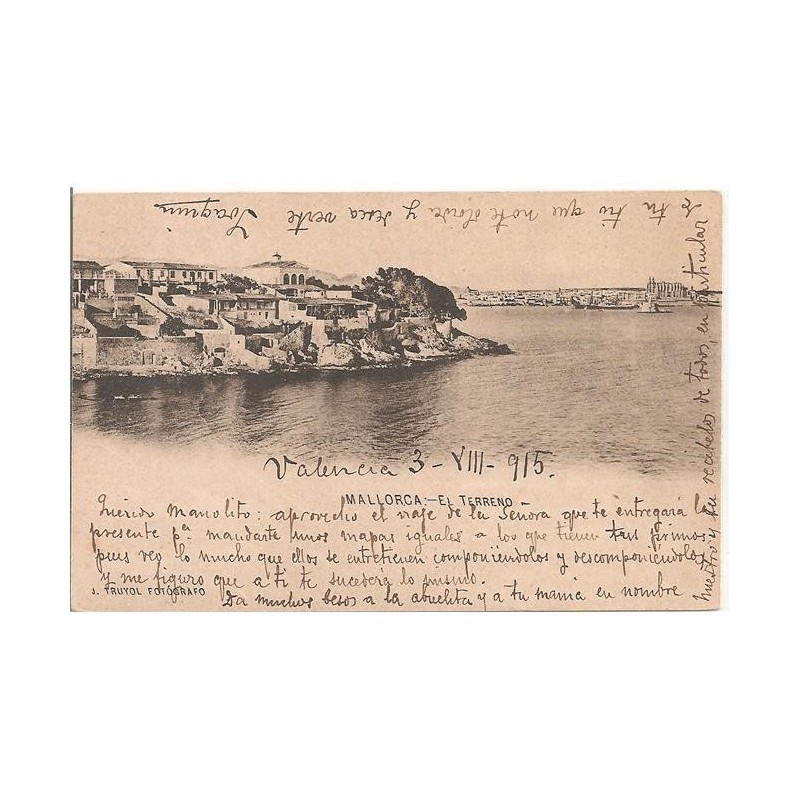 Valencia 3-VIII-915.
MALLORCA.-EL TERRENO
Querido Manolito: aprovecho el viaje de la Señora que te entregará la
presente pª mandarte unos mapas iguales a los que tienen tus primos,
pues veo lo mucho que ellos se entretienen componiéndolos y descomponiéndolos
y me figuro que a ti te sucederá lo mismo.
J. TRUYOL FOTÓGRAFO
Da muchos besos a la abuelita y a tu mamia en nombre
nuestro y tu recabelos de todos, en particular
de tu tio que no te olvida y desea verte
Joaquin